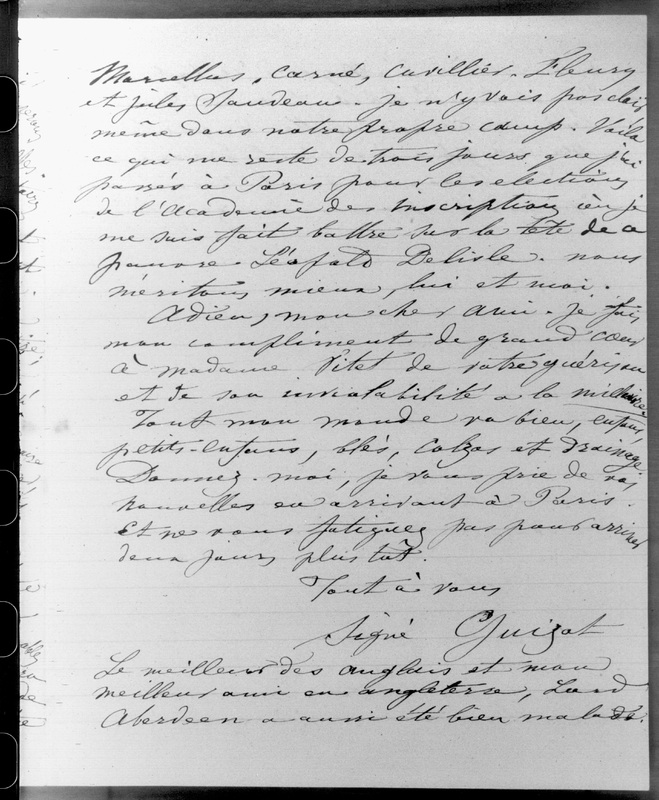 Marcellus, Carné, Cuvillier-Fleury
et jules Sandeau. je n'y vois pas clair
même dans notre propre camp. Voilà
ce qui me reste de trois jours que j'ai
passés à Paris pour les elections
de l'académie des Inscription où je
me suis fait battre sur la tête de ce
pauvre Léopold Delisle. nous
méritons mieux, lui et moi.
Adieu, mon cher ami. je fais
mon compliment de grand cœur
à madame Vitet de votre guérison
et de son inviolabilité a la
Tout mon monde va bien, enfans,
petits-enfans, blés, colzas et drainage.
Donnez-moi, je vous prie de vos
nouvelles en arrivant à Paris.
Et ne vous fatiguez pas pour arriver
deux jours plus tôt.
Tout à vous
Signé Guizot
Le meilleur des anglais et mon
meilleur ami en angleterre, Lord
Aberdeen a aussi été bien malade.